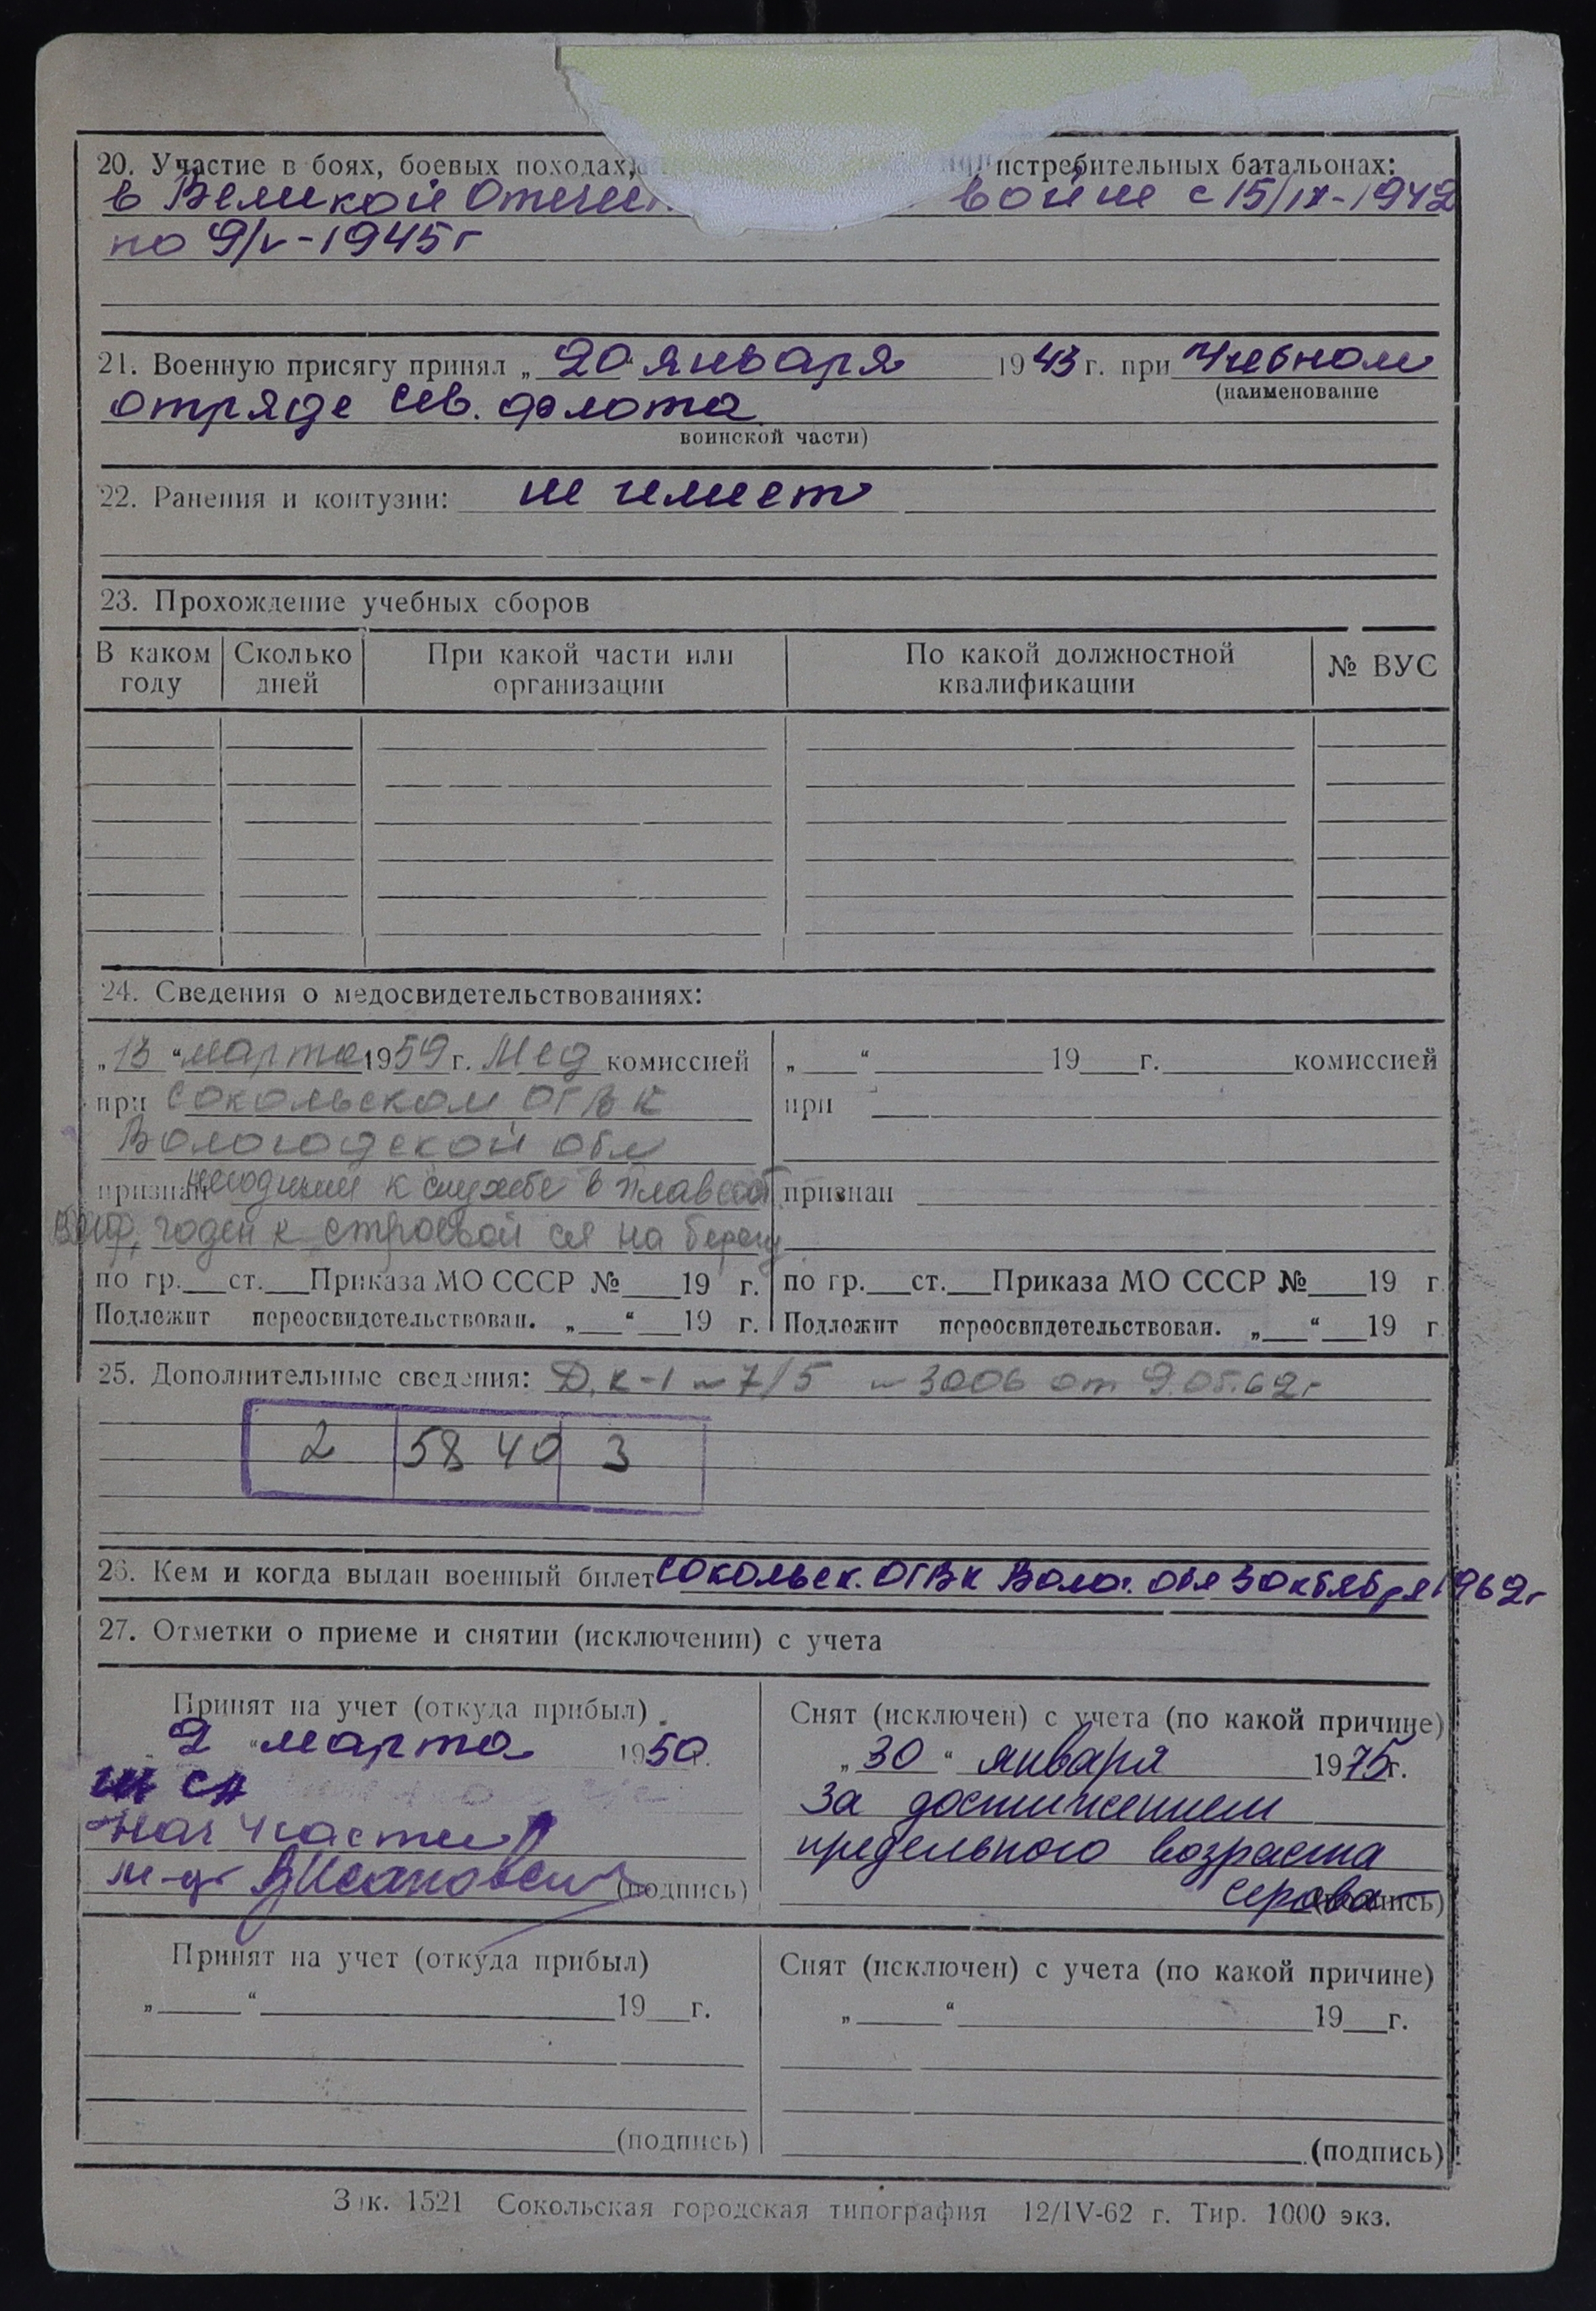 20. Участие в боях, боевых походах, истребительных батальонах:
в Великой Отечест войне с 15/IX-1942
по 9/V-1945г
21. Военную присягу принял „20“ января 1943 г. при Учебном
(наименование
отряде Сев. флота
воинской части)
22. Ранения и контузии: не имеет
23. Прохождение учебных сборов
В каком году Сколько дней При какой части или организации По какой должностной квалификации № ВУС
24. Сведения о медосвидетельствованиях:
„13“ марта 1959 г. Мед комиссией
при Сокольском ОГВК
Вологодской обл
признан негодным к службе в плавсост
ВМФ, годен к строевой сл на берегу
по гр. ст. Приказа МО СССР № 19 г.
Подлежит переосвидетельствован. „ “ 19 г.
„ “ 19 г. комиссией
при
признан
по гр. ст. Приказа МО СССР № 19 г
Подлежит переосвидетельствован. „ “ 19 г
25. Дополнительные сведения: Д.К-1 ~ 7/5 ~ 3006 от 9.05.62г
2 58 40 3
26. Кем и когда выдан военный билет Сокольск. ОГВК Волог. обл 3 октября 1962г
27. Отметки о приеме и снятии (исключении) с учета
Принят на учет (откуда прибыл)
„2“ марта 1950.
Нач 4 части
м-р (подпись)
Снят (исключен) с учета (по какой причине)
„30“ января 1975г.
За достижением
предельного возраста
Серова (подпись)
Принят на учет (откуда прибыл)
„ “ 19 г.
(подпись)
Снят (исключен) с учета (по какой причине)
„ “ 19 г.
(подпись)
Зак. 1521 Сокольская городская типография 12/IV-62 г. Тир. 1000 экз.